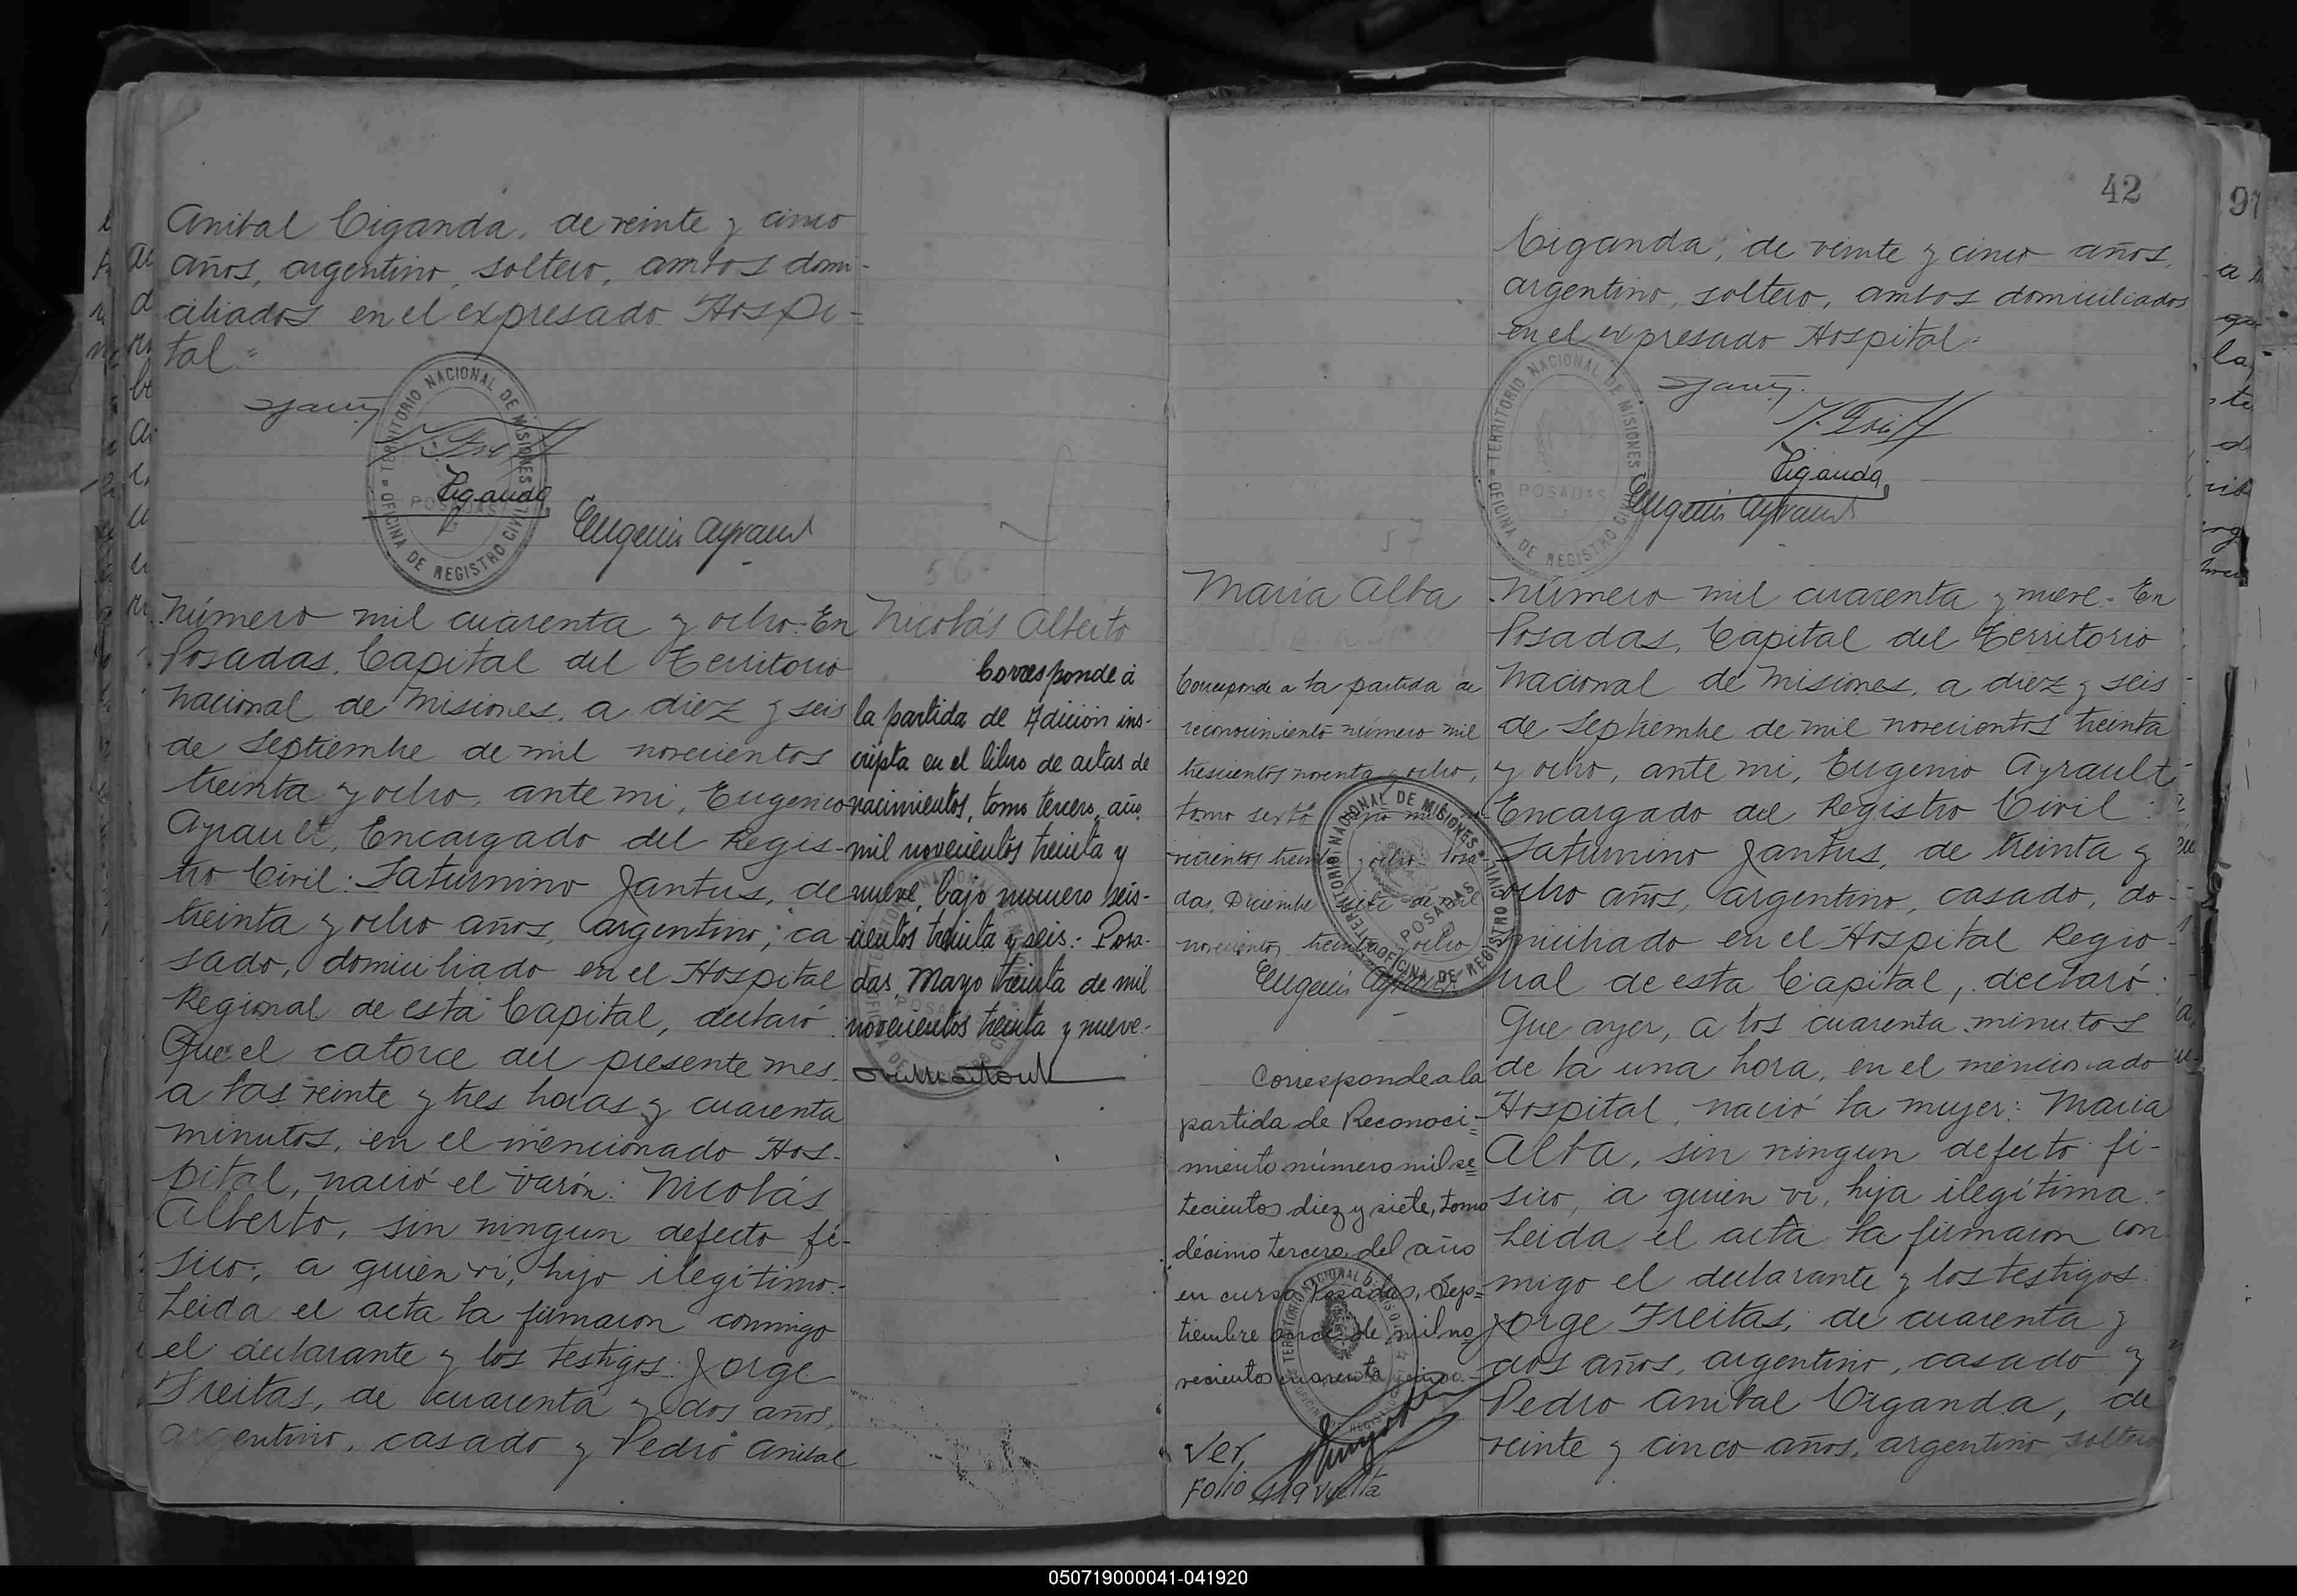 Anibal Ciganda, de veinte y cinco
años, argentino, soltero, ambos domi-
ciliados en el expresado Hospi-
tal.=
TERRITORIO NACIONAL DE MISIONES
POSADAS
OFICINA DE REGISTRO CIVIL
Ciganda
Eugenio Ayrault
56
Nicolás Alberto
Número mil cuarenta y ocho. En
Posadas, Capital del Territorio
Nacional de Misiones, a diez y seis
de Septiembre de mil novecientos
treinta y ocho, ante mi, Eugenio
Ayrault, Encargado del Regis-
tro Civil: Saturnino Jantus, de
treinta y ocho años, argentino, ca
sado, domiciliado en el Hospital
Regional de esta Capital, declaró:
Que el catorce del presente mes,
a las veinte y tres horas y cuarenta
minutos, en el mencionado Hos-
pital, nació el varón: Nicolás
Alberto, sin ningun defecto fi-
sico, a quien vi, hijo ilegítimo.-
Leida el acta la firmaron conmigo
el declarante y los testigos: Jorge
Freitas, de cuarenta y dos años,
argentino, casado y Pedro Anibal
Corresponde á
la partida de Adición ins-
cripta en el libro de actas de
nacimientos, tomo tercero, año
mil novecientos treinta y
nueve, bajo numero seis-
cientos treinta y seis.- Posa-
das, Mayo treinta de mil
novecientos treinta y nueve.-
42
97
Ciganda, de veinte y cinco años,
argentino, soltero, ambos domiciliados
en el expresado Hospital.-
TERRITORIO NACIONAL DE MISIONES
POSADAS
OFICINA DE REGISTRO CIVIL
Ciganda
Eugenio Ayrault
57
María Alba
Corresponde a la partida de
reconocimiento número mil
trescientos noventa y ocho,
tomo sexto año mil no-
vecientos treinta y ocho.- Posa-
das, Diciembre siete de mil
novecientos treinta y ocho
Eugenio Ayrault
TERRITORIO NACIONAL DE MISIONES
POSADAS
OFICINA DE REGISTRO CIVIL
Corresponde a la
partida de Reconoci=
miento número mil se=
tecientos diez y siete, tomo
décimo tercero del año
en curso. Posadas, Sep=
tiembre once de mil no
vecientos cuarenta
Ver,
Folio 419 vuelta
Número mil cuarenta y nueve.- En
Posadas, Capital del Territorio
Nacional de Misiones, a diez y seis
de Septiembre de mil novecientos treinta
y ocho, ante mi, Eugenio Ayrault
Encargado del Registro Civil:
Saturnino Jantus, de treinta y
ocho años, argentino, casado, do-
miciliado en el Hospital Regio-
nal de esta Capital, declaró:
Que ayer, a los cuarenta minutos
de la una hora, en el mencionado
Hospital, nació la mujer: María
Alba, sin ningun defecto fi-
sico, a quien vi, hija ilegítima.-
Leida el acta la firmaron con
migo el declarante y los testigos:
Jorge Freitas, de cuarenta y
dos años, argentino, casado y
Pedro Anibal Ciganda, de
veinte y cinco años, argentino soltero
050719000041-041920